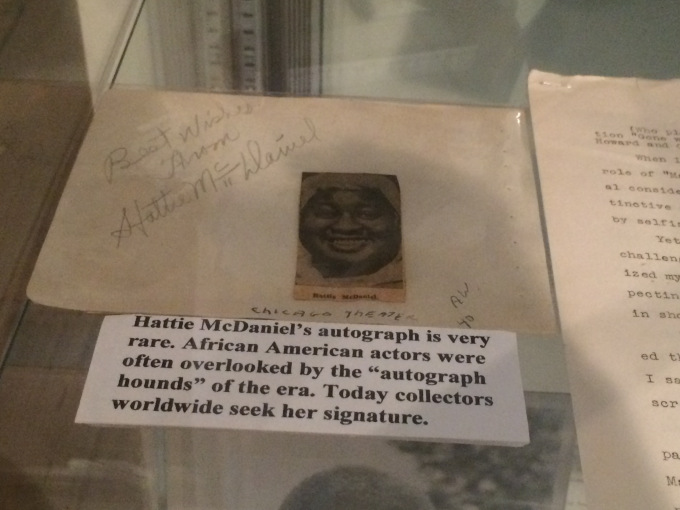 Best Wishes
from
Hattie McDaniel
Hattie McDaniel.
CHICAGO THEATER
Hattie McDaniel's autograph is very
rare. African American actors were
often overlooked by the “autograph
hounds” of the era. Today collectors
worldwide seek her signature.
(who pl
tion "Gone w
Howard and
When I
role of "Ma
al conside
tinctive
by selfis
Yet
challen
ized my
pectin
in sho
ed th
I sa
scr
pa
Ma